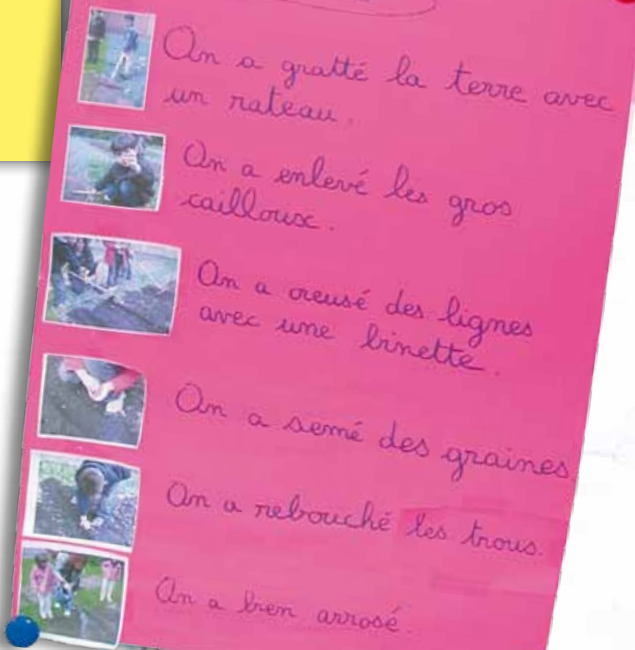 On a gratté la terre avec
un rateau.
On a enlevé les gros
cailloux.
On a creusé des lignes
avec une binette.
On a semé des graines
On a rebouché les trous.
On a bien arrosé.